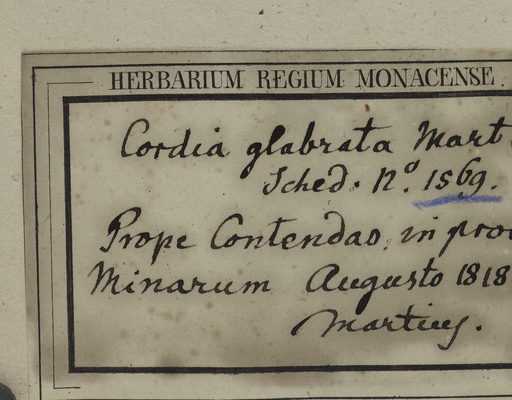 HERBARIUM REGIUM MONACENSE.
Cordia glabrata Mart
Sched. No. 1569.
Prope Contendas, in prov
Minarum Augusto 1818
Martius.